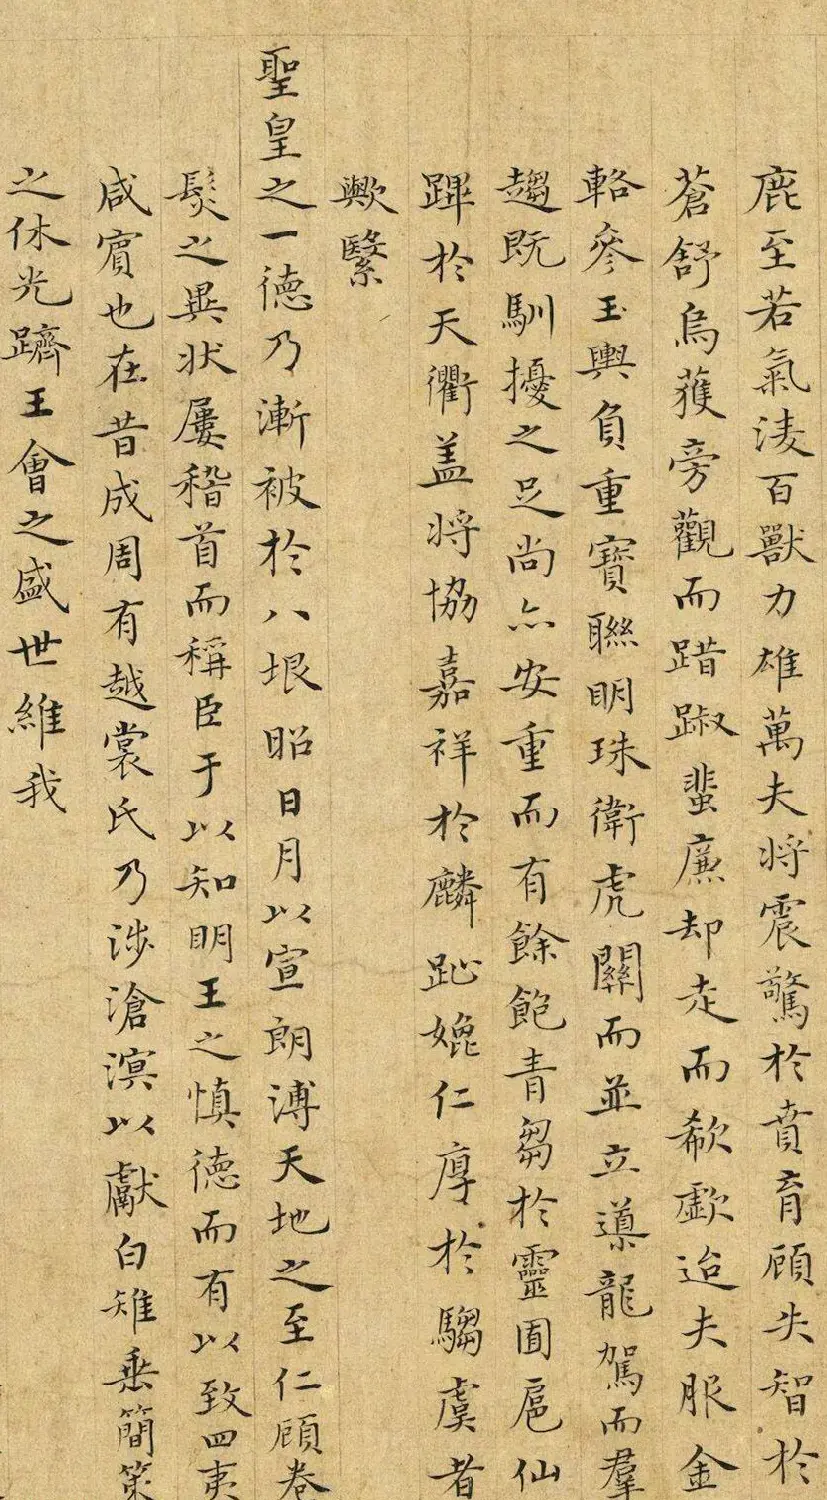 鹿至若氣淩百獸力雄萬夫將震驚於賁育顧失智於
蒼舒烏獲旁觀而踖踧蜚廉却走而欷歔迨夫服金
輅參玉輿負重寶聯明珠衛虎關而並立導龍駕而羣
趨既馴擾之足尚亦安重而有餘飽青芻於靈囿扈仙
蹕於天衢盖將協嘉祥於麟趾媲仁厚於騶虞者
歟繄
聖皇之一德乃漸被於八垠昭日月以宣朗溥天地之至仁顧卷
髮之異状屢稽首而稱臣于以知明王之慎德而有以致四夷
咸賓也在昔成周有越裳氏乃涉滄溟以獻白雉垂簡策
之休光躋王會之盛世維我